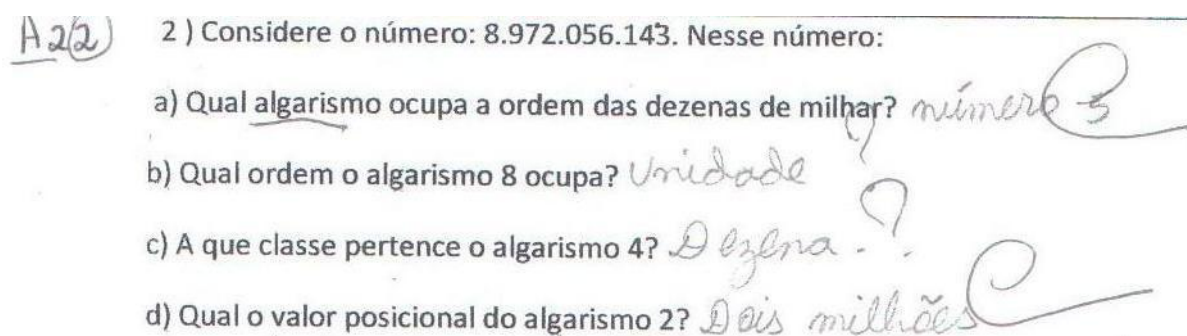 A2(2) 2 ) Considere o número: 8.972.056.143. Nesse número:
a) Qual algarismo ocupa a ordem das dezenas de milhar? número 5
b) Qual ordem o algarismo 8 ocupa? Unidade ?
c) A que classe pertence o algarismo 4? Dezena. ?
d) Qual o valor posicional do algarismo 2? Dois milhões